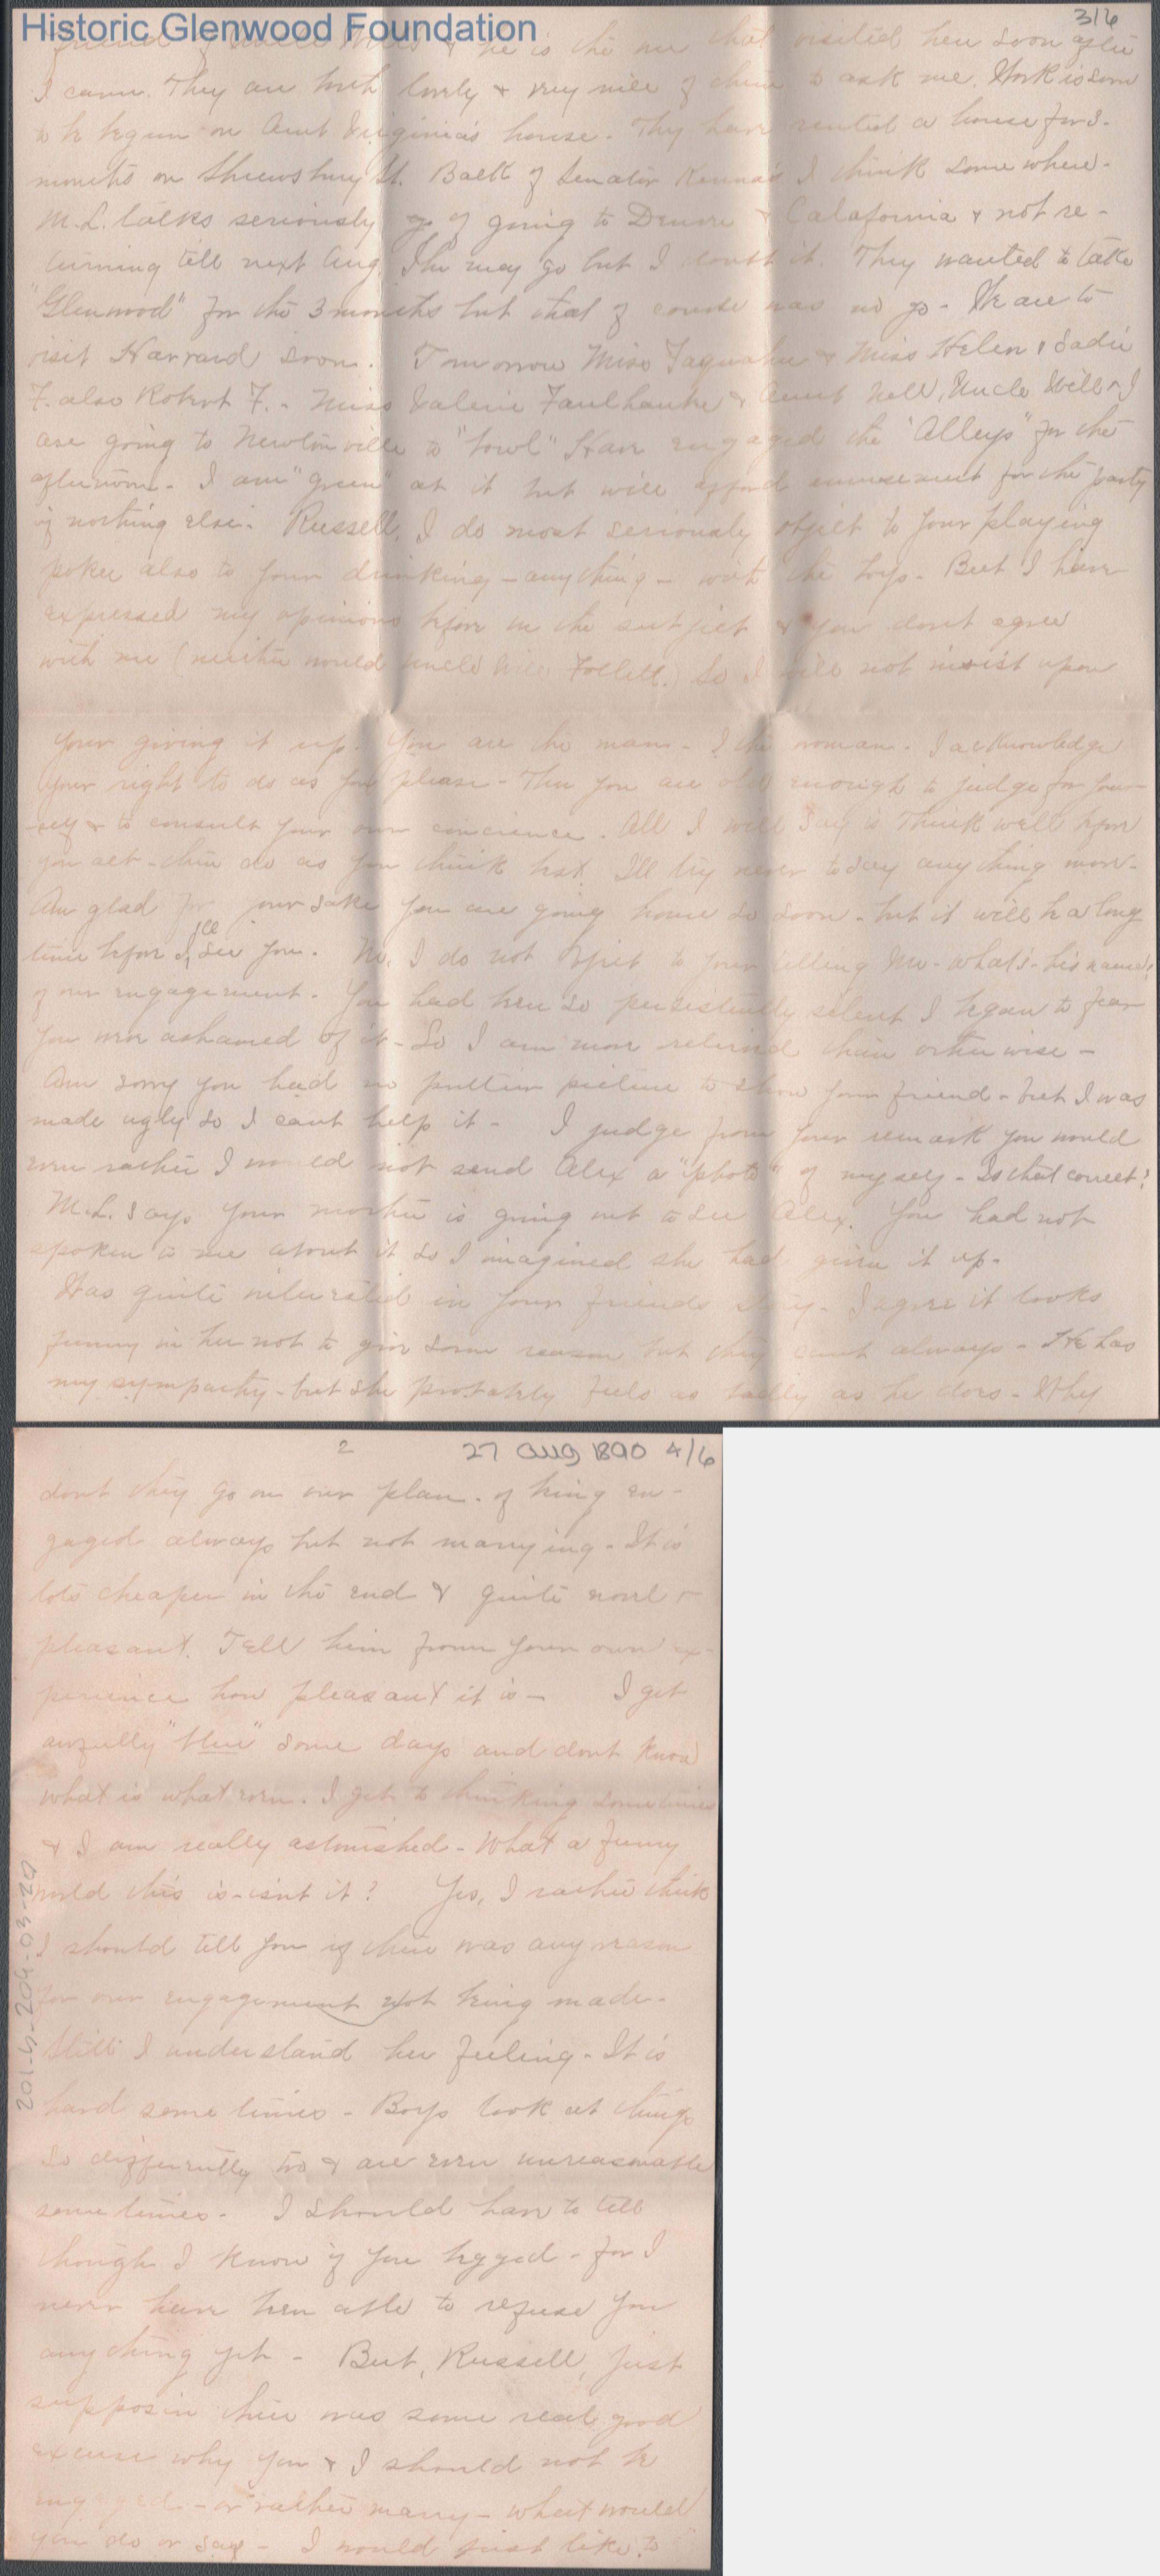 Historic Glenwood Foundation
3/6
friend of Uncle Will's & he is the one that visited here soon after
I came. They are both lovely & very nice of them to ask me. Work is soon
to be begun on Aunt Virginia's house - They have rented a house for 3-
months on Shrewsbury St. Back of Senator Kenna's I think somewhere -
M.L. talks seriously of going to Denver & Calafornia & not re-
turning till next Aug. She may go but I doubt it. They wanted to take
"Glenwood" for the 3 months but that of course was no go - We are to
visit Harvard soon. Tomorrow Miss & Miss Helen & Sadie
F. also Robert F. - Miss Valerie & Aunt Nell, Uncle Will & I
are going to Newtonville to "bowl" Have engaged the "Alleys" for the
afternoon - I am "green" at it but will afford amusement for the party
if nothing else. Russell, I do most seriously object to your playing
poker also to your drinking - anything - with the boys - But I have
expressed my opinions before on the subject & you dont agree
with me (neither would Uncle Will Follett.) So I will not insist upon
your giving it up. You are the man - I the woman. I acknowledge
your right to do as you please - Then you are old enough to judge for your-
self & to consult your own concience. All I will say is Think well before
you act - then do as you think best. I'll try never to say anything more -
Am glad for your sake you are going home so soon - but it will be a long
time before I'll see you. No, I do not object to your telling Mr - what's-his name?
of our engagement. You had been so persistently silent I began to fear
you were ashamed of it - So I am more relieved than otherwise -
Am sorry you had no prettier picture to show your friend - but I was
made ugly so I cant help it - I judge from your remark you would
even rather I would not send Alex a "photo" of myself - Is that correct?
M.L. says your mother is going out to see Alex. You had not
spoken to me about it so I imagined she had given it up -
Was quite interested in your friends story - I agree it looks
funny in her not to give some reason but they cant always - He has
my sympathy - but she probably feels as badly as he does - Why
2 27 aug 1890 4/6
dont they go on our plan - of being en-
gaged always but not marrying - It is
lots cheaper in the end & quite novel &
pleasant. Tell him from your own ex-
perience how pleasant it is - I get
awfully "blue" some days and dont know
what is what even. I get to thinking sometimes
& I am really astonished - What a funny
world this is - isnt it? Yes, I rather think
I should tell you if there was any reason
for our engagement not being made -
Still I understand her feeling - It is
hard sometimes - Boys look at things
so differently too & are even unreasonable
sometimes - I should have to tell
though I know if you begged - for I
never have been able to refuse you
anything yet - But, Russell, just
supposin there was some real good
excuse why you & I should not be
engaged - or rather marry - what would
you do or say - I would just like to
2014-204-03-20